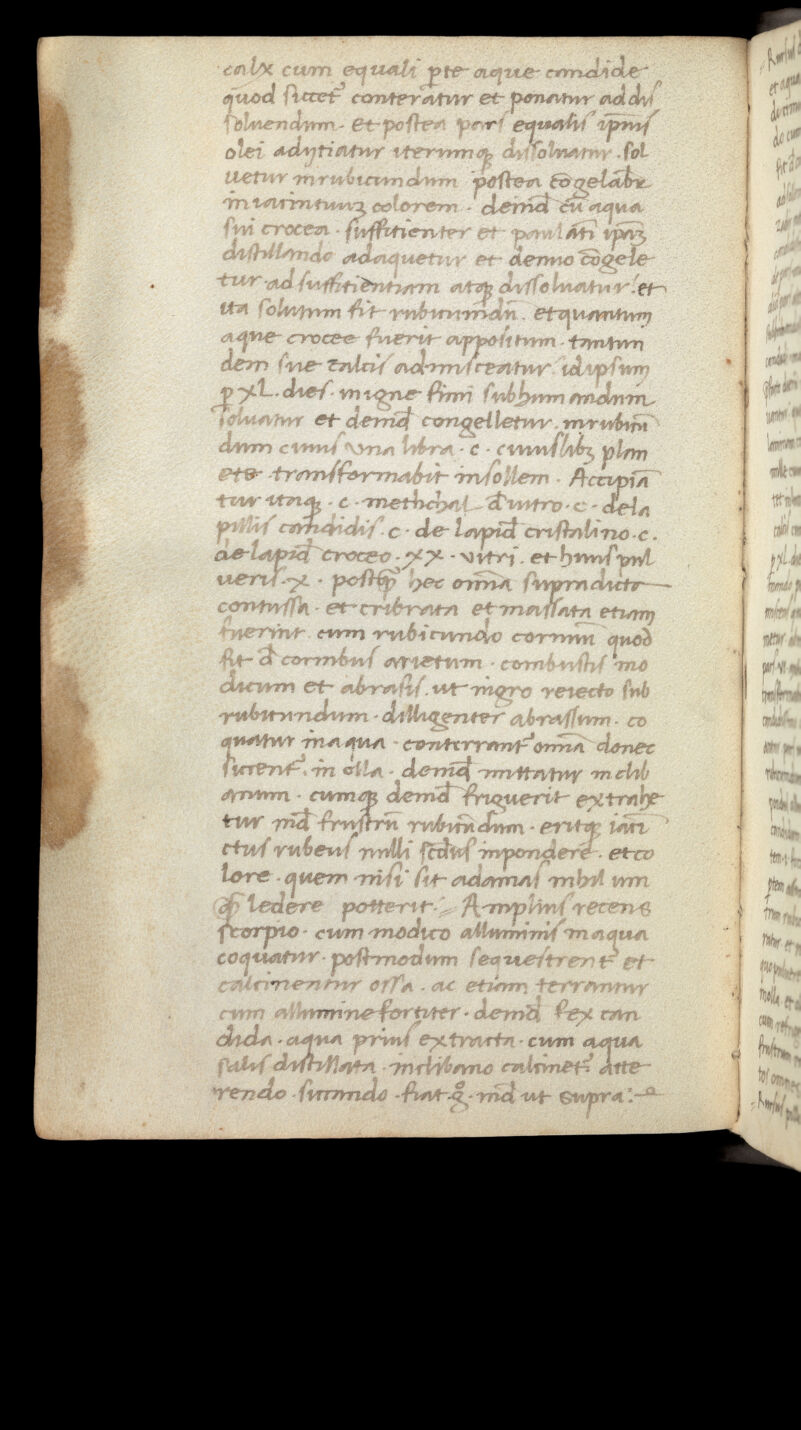 calx cum equali ꝑte aque candide
quod siccet᷑ conteratur et ponatur ad dis
soluendum · et postea pars equalis ip̄ius
olei adijtiatur iterumqꝫ dissoluatur · sol
uetur in rubicundum postea cōgelabr̄
in iacintinuꝫ colorem · deind̄ cū aqua
sui crocea · suffitienter et paulatī ip̄aꝫ
distillando adaquetur et denuo cōgele
tur · ad suffitientiam atqꝫ dissoluatur · et
ita solutum fit rubicundū · et quantum
aque crocee fuerit appositum · tantun
dem sue calcis admisceatur · id ipsum
ꝑ XL · dies · in igne fimi sub humandum
soluatur et deind̄ congelletur · in rubicū
dum cuius una libra · c · cuiuslibꝫ plan
ete transformabit in sollem · Accipiā
tur itaqꝫ · c · methchal d̄ uitro · c · de la
pillis candidis · c · de lapid̄ cristalino · c ·
de lapid̄ croceo · xx · vitri · et huius pul
ueris · x · postqꝫ̄ hec omīa supradicta
contussa · et cribrata et massata etiam
fuerint · cum rubicundo cornuū quod
fit d̄ cornibus arietum · combustis mo
dicum et abrasis · ut nigro reiecto sub
rubicundum · dilligenter abrassum · co
quatur in aqua · conterrant᷑ omīa donec
siccent᷑ · in olla · deind̄ mittatur in clib
anum · cumqꝫ deind̄ friguerit extrahe
tur ind̄ frustrū rubicūdum · eritqꝫ iaci
ctus rubeus nulli sc̄dus in pondere · et co
lore · quem nisi sit adamas nihil um
qꝫ̄ ledere potterit · Amplius recens
scorpio · cum modico alluminis in aqua
coquatur · postmodum sequestrent᷑ et
calcinentur ossa · ac etiam terrantur
cum allumine fortiter · deind̄ fex can
dida · aqua prius extracta · cum aqua
salis distillata · in clibano calcinet᷑ · atte
rendo · siccando · fiat · g̊ · ind̄ ut supra :~